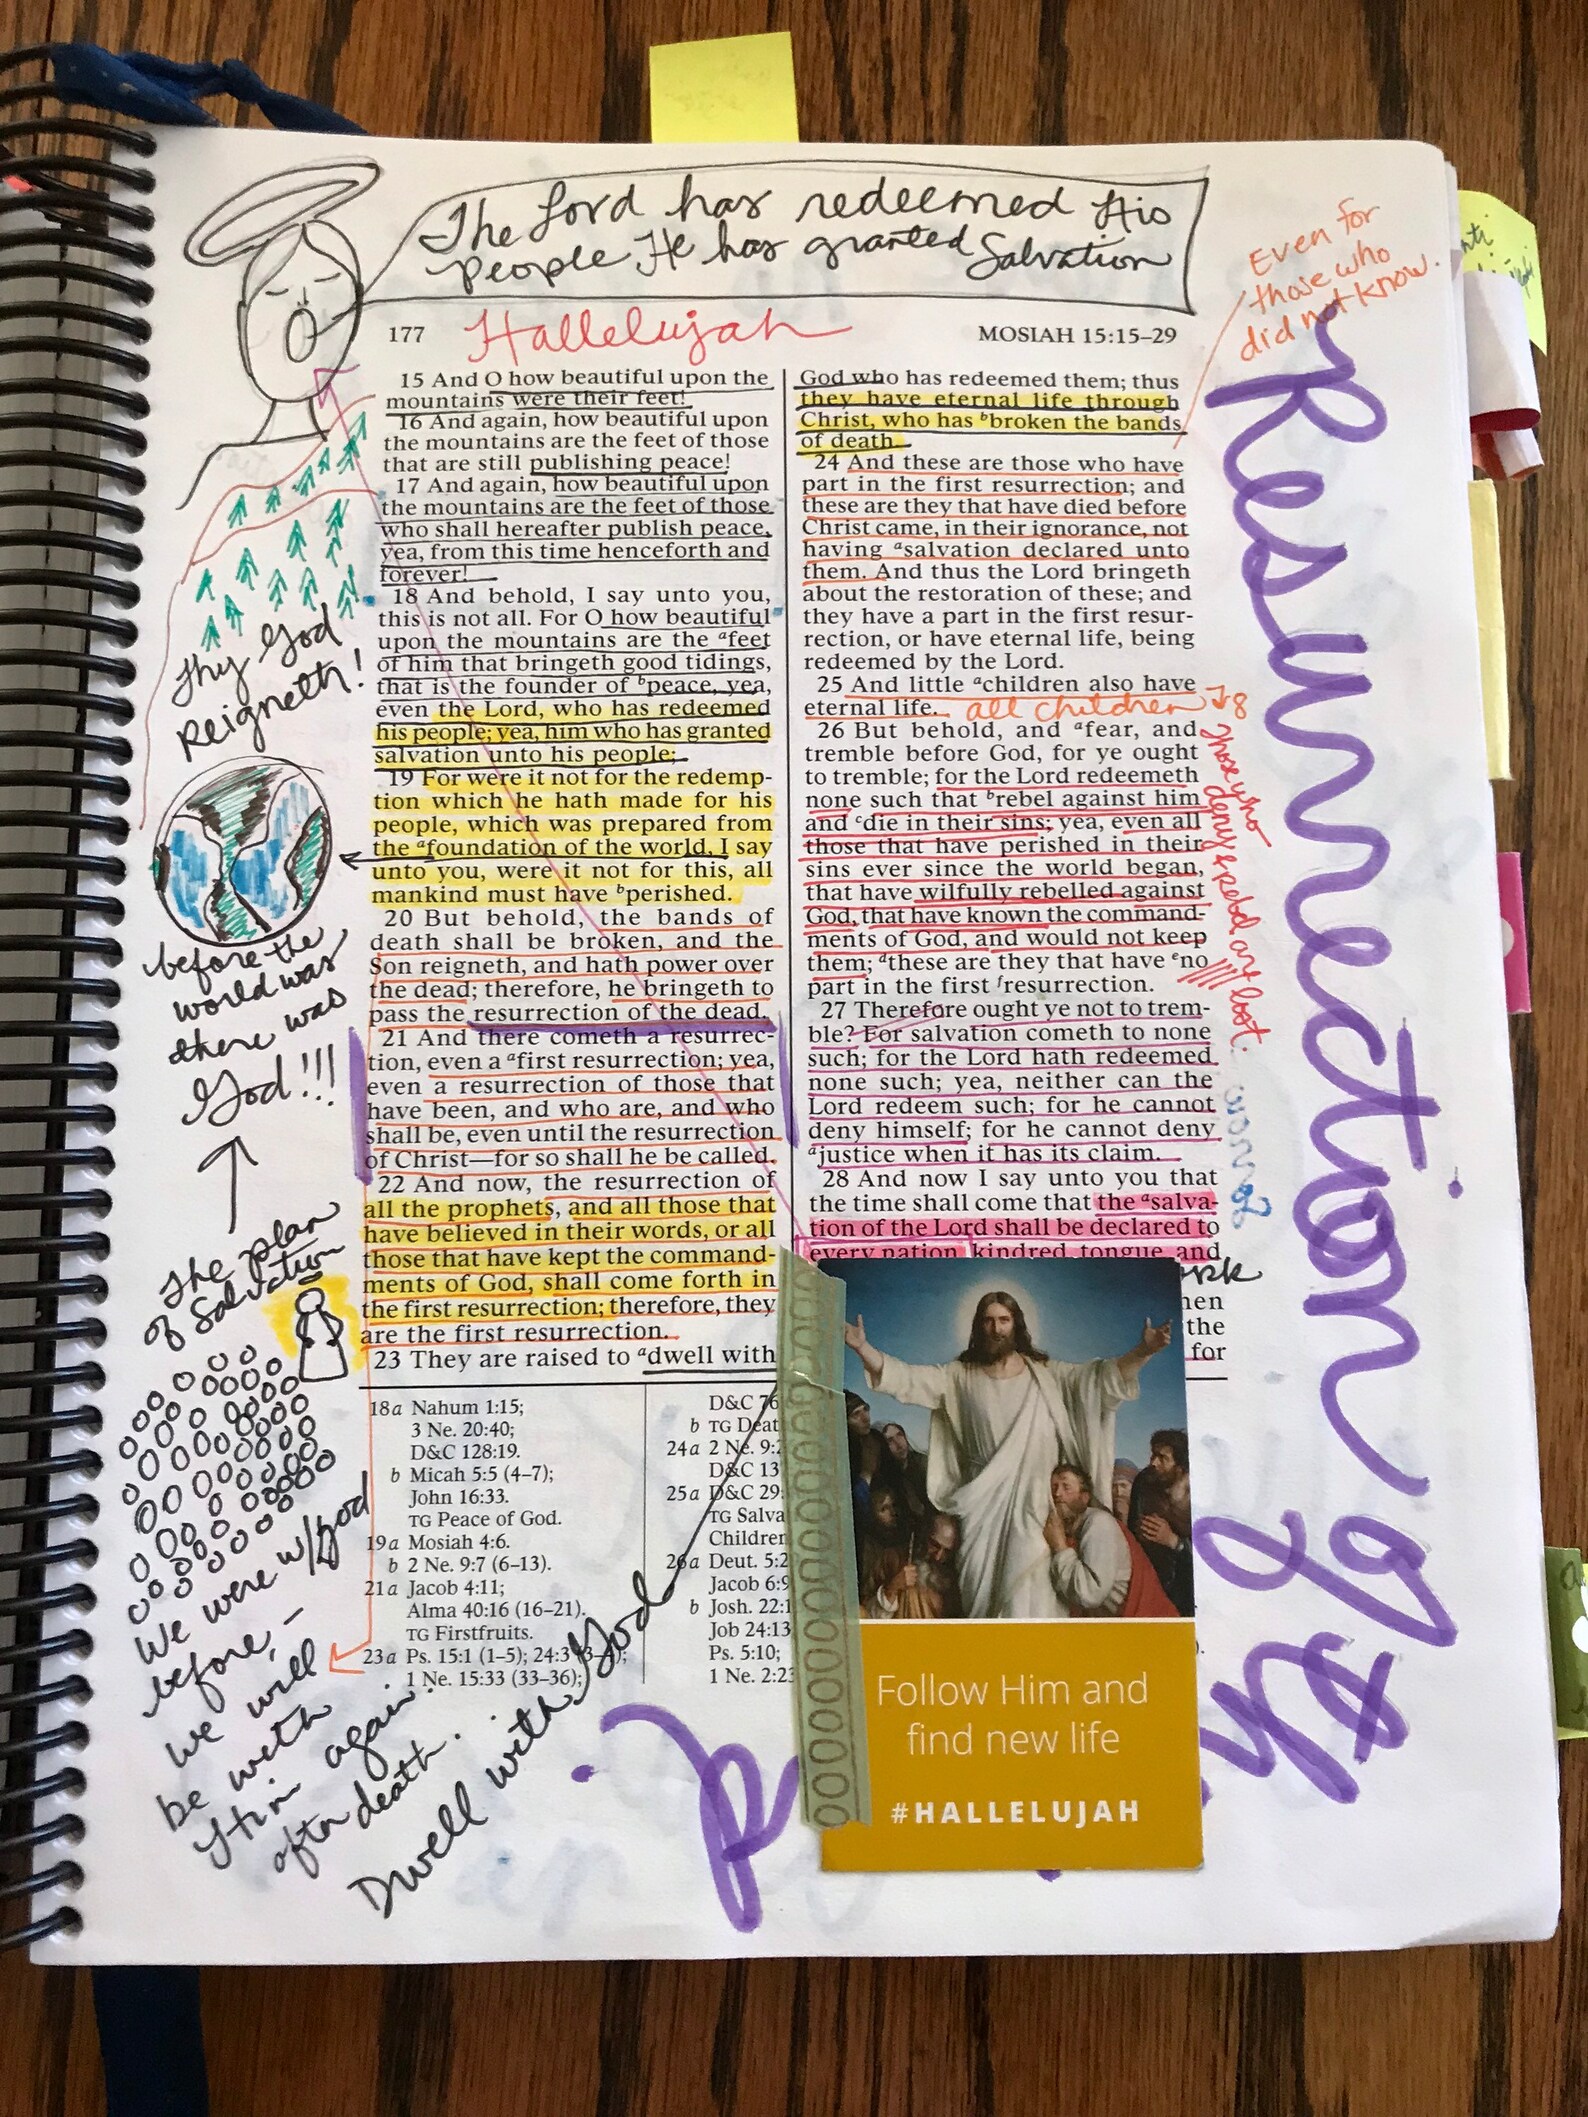 The Lord has redeemed His
People He has granted Salvation
Even for
those who
did not know.
177
Hallelujah
MOSIAH 15:15–29
15 And O how beautiful upon the
mountains were their feet!
16 And again, how beautiful upon
the mountains are the feet of those
that are still publishing peace!
17 And again, how beautiful upon
the mountains are the feet of those
who shall hereafter publish peace,
yea, from this time henceforth and
forever!
18 And behold, I say unto you,
this is not all. For O how beautiful
upon the mountains are the afeet
of him that bringeth good tidings,
that is the founder of bpeace, yea,
even the Lord, who has redeemed
his people; yea, him who has granted
salvation unto his people;
19 For were it not for the redemp-
tion which he hath made for his
people, which was prepared from
the afoundation of the world, I say
unto you, were it not for this, all
mankind must have bperished.
20 But behold, the bands of
death shall be broken, and the
Son reigneth, and hath power over
the dead; therefore, he bringeth to
pass the resurrection of the dead.
21 And there cometh a resurrec-
tion, even a afirst resurrection; yea,
even a resurrection of those that
have been, and who are, and who
shall be, even until the resurrection
of Christ—for so shall he be called.
22 And now, the resurrection of
all the prophets, and all those that
have believed in their words, or all
those that have kept the command-
ments of God, shall come forth in
the first resurrection; therefore, they
are the first resurrection.
23 They are raised to adwell with
God who has redeemed them; thus
they have eternal life through
Christ, who has bbroken the bands
of death.
24 And these are those who have
part in the first resurrection; and
these are they that have died before
Christ came, in their ignorance, not
having asalvation declared unto
them. And thus the Lord bringeth
about the restoration of these; and
they have a part in the first resur-
rection, or have eternal life, being
redeemed by the Lord.
25 And little achildren also have
eternal life. all children ↓8
26 But behold, and afear, and
tremble before God, for ye ought
to tremble; for the Lord redeemeth
none such that brebel against him
and cdie in their sins; yea, even all
those that have perished in their
sins ever since the world began,
that have wilfully rebelled against
God, that have known the command-
ments of God, and would not keep
them; dthese are they that have eno
part in the first fresurrection.
27 Therefore ought ye not to trem-
ble? For salvation cometh to none
such; for the Lord hath redeemed
none such; yea, neither can the
Lord redeem such; for he cannot
deny himself; for he cannot deny
ajustice when it has its claim.
28 And now I say unto you that
the time shall come that the asalva-
tion of the Lord shall be declared to
every nation, kindred, tongue, and
the
for
Thy God
Reigneth!
before the
world was
there was
God!!!
The plan
of Salvation
We were w/God
before,–
we will
be with
Him again
after death.
Dwell with God
Those who
deny & rebel are
lost.
Resurrection of th
18a Nahum 1:15;
3 Ne. 20:40;
D&C 128:19.
b Micah 5:5 (4–7);
John 16:33.
TG Peace of God.
19a Mosiah 4:6.
b 2 Ne. 9:7 (6–13).
21a Jacob 4:11;
Alma 40:16 (16–21).
TG Firstfruits.
23a Ps. 15:1 (1–5); 24:3
1 Ne. 15:33 (33–36);
D&C 76
b TG Deat
24a 2 Ne. 9:2
D&C 13
25a D&C 29
TG Salva
Children
26a Deut. 5:2
Jacob 6:9
b Josh. 22:1
Job 24:13
Ps. 5:10;
1 Ne. 2:23
Follow Him and
find new life
#HALLELUJAH